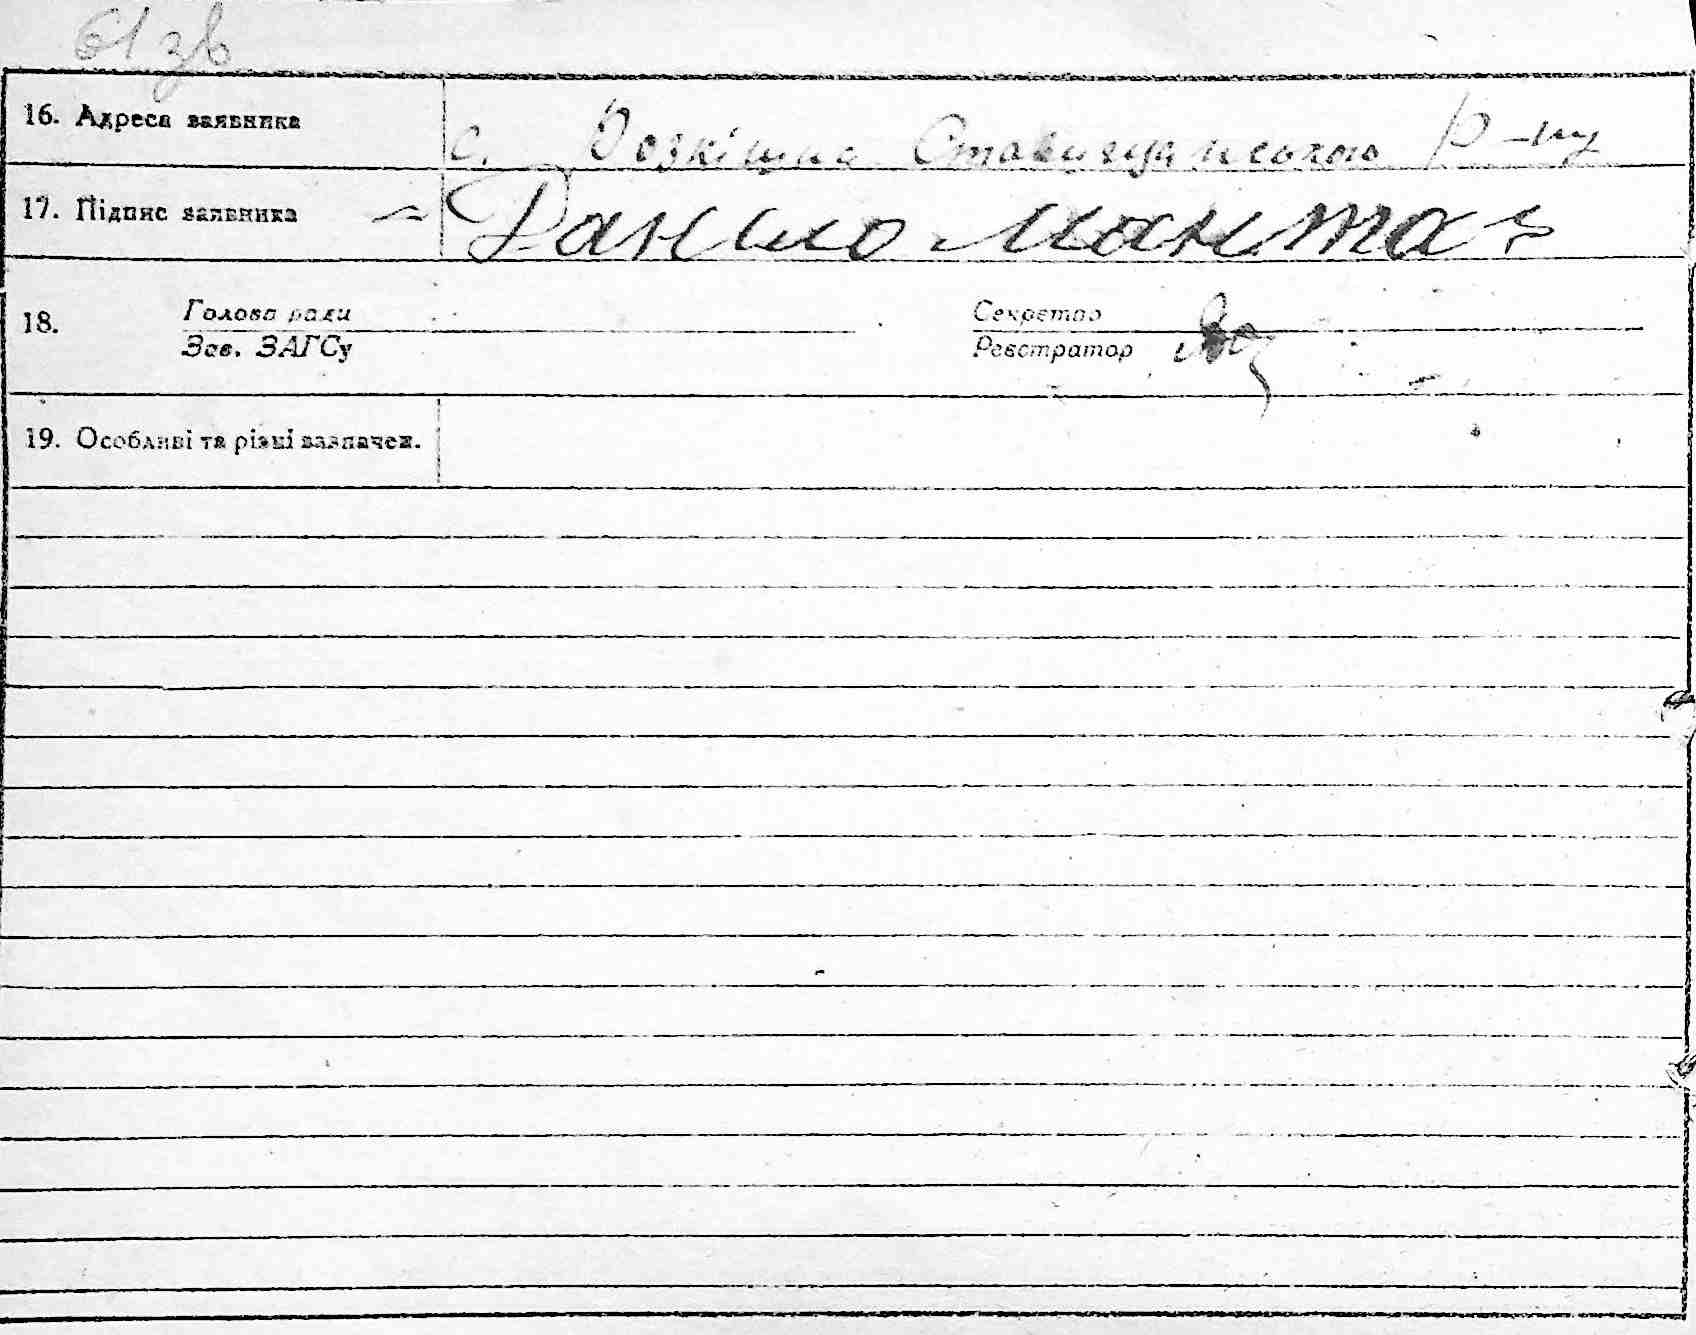 61 зв
16. Адреса заявника с. Розкішна Ставищанського р-ну
17. Підпис заявника Данило Мантач
18. Голова ради Секретар
Зав. ЗАГСу Реєстратор
19. Особливі та різні зазначен.